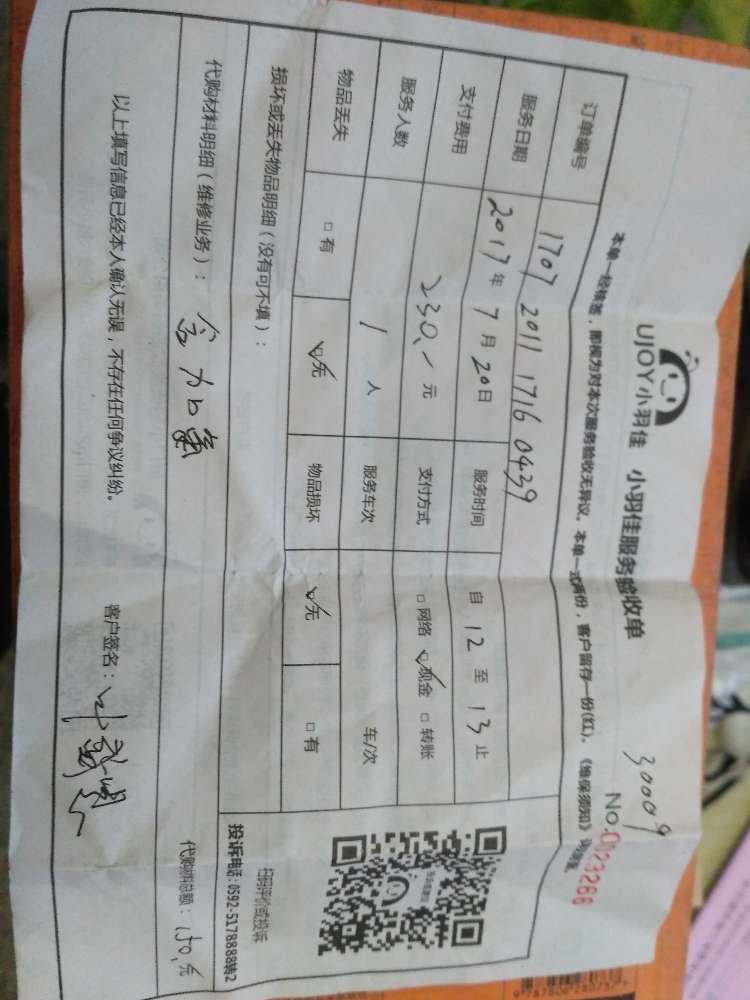 30009
UJOY小羽佳 小羽佳服务验收单
No.0123266
本单一经核签，即视为对本次服务验收无异议。本单一式两份，客户留存一份(红)。《维保须知》
订单编号 1707 2011 1716 0439
服务日期 2017年7月20日 服务时间 自12至13止
支付费用 230.-元 支付方式 □网络 ☑现金 □转账
服务人数 1人 服务车次 车/次
物品丢失 □有 ☑无 物品损坏 ☑无 □有
损坏或丢失物品明细（没有可不填）：
扫码评价或投诉
投诉电话：0592-5178888转2
代购材料明细（维修业务）：
代购材料总额：150.元
以上填写信息已经本人确认无误，不存在任何争议纠纷。
客户签名：叶